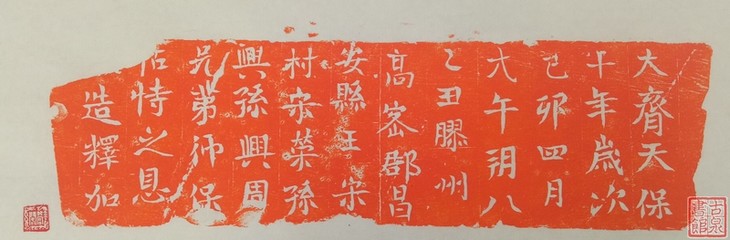 大齊天保
十年歲次
己卯四月
戊午朔八
乙丑膠州
高密郡昌
安縣王宋
村宋榮孫
興孫興周
兄弟師保
恃之息
造釋加